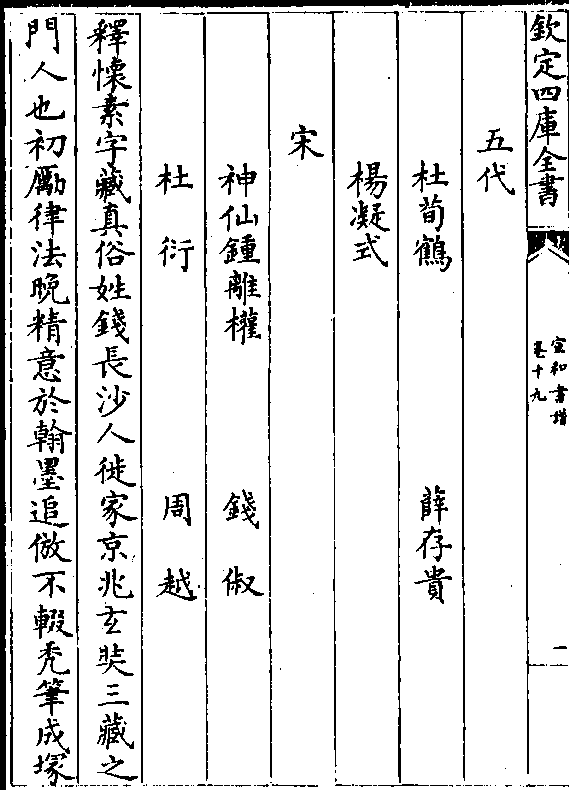 欽定四庫全書
宣和書譜
卷十九
一
五代
杜荀鶴 薛存貴
楊凝式
宋
神仙鍾離權 錢俶
杜衍 周越
釋懷素字藏真俗姓錢長沙人徙家京兆玄奘三藏之
門人也初勵律法晚精意於翰墨追倣不輟禿筆成塚